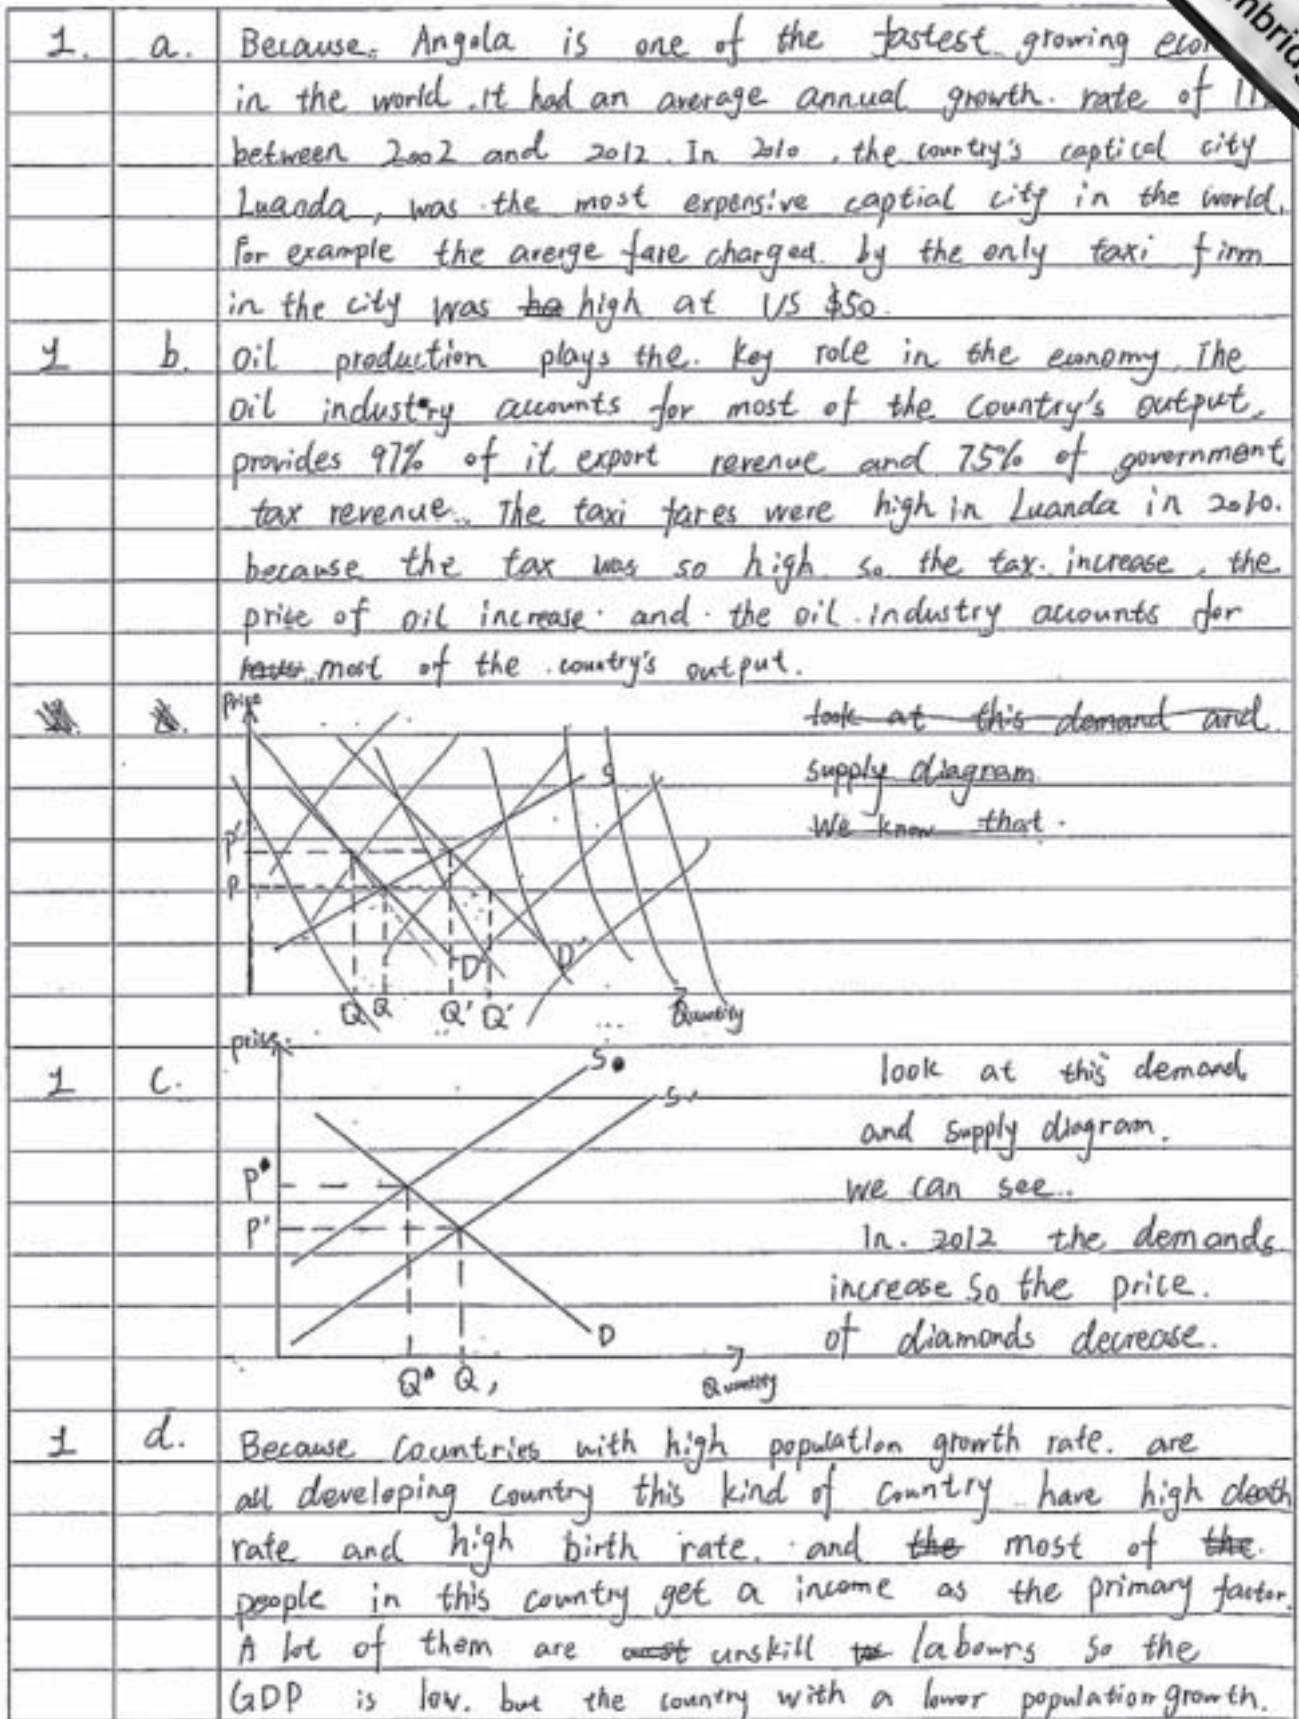 1. a. Because. Angola is one of the fastest growing
in the world. It had an average annual growth. rate of
between 2002 and 2012. In 2010, the country's captical city
Luanda, was the most expensive captial city in the world.
For example the averge fare charged by the only taxi firm
in the city was high at US $50.
1 b. Oil production plays the. key role in the economy. The
oil industry accounts for most of the country's output,
provides 97% of it export revenue and 75% of government
tax revenue. The taxi fares were high in Luanda in 2010.
because the tax was so high. so the tax. increase, the
price of oil increase. and. the oil industry accounts for
most of the country's output.
Price
look at this demand and
supply diagram
We know that.
S
P'
P
D D'
Q Q Q' Q' Quantity
price
1 c. look at this demand
and supply diagram.
we can see..
In. 2012 the demands
increase so the price.
of diamonds decrease.
S
S'
P
P'
D
Q Q, Quantity
1 d. Because countries with high population growth rate. are
all developing country this kind of country have high death
rate and high birth rate. and the most of the
people in this country get a income as the primary factor.
A lot of them are unskill labours so the
GDP is low. but the country with a lower population growth.